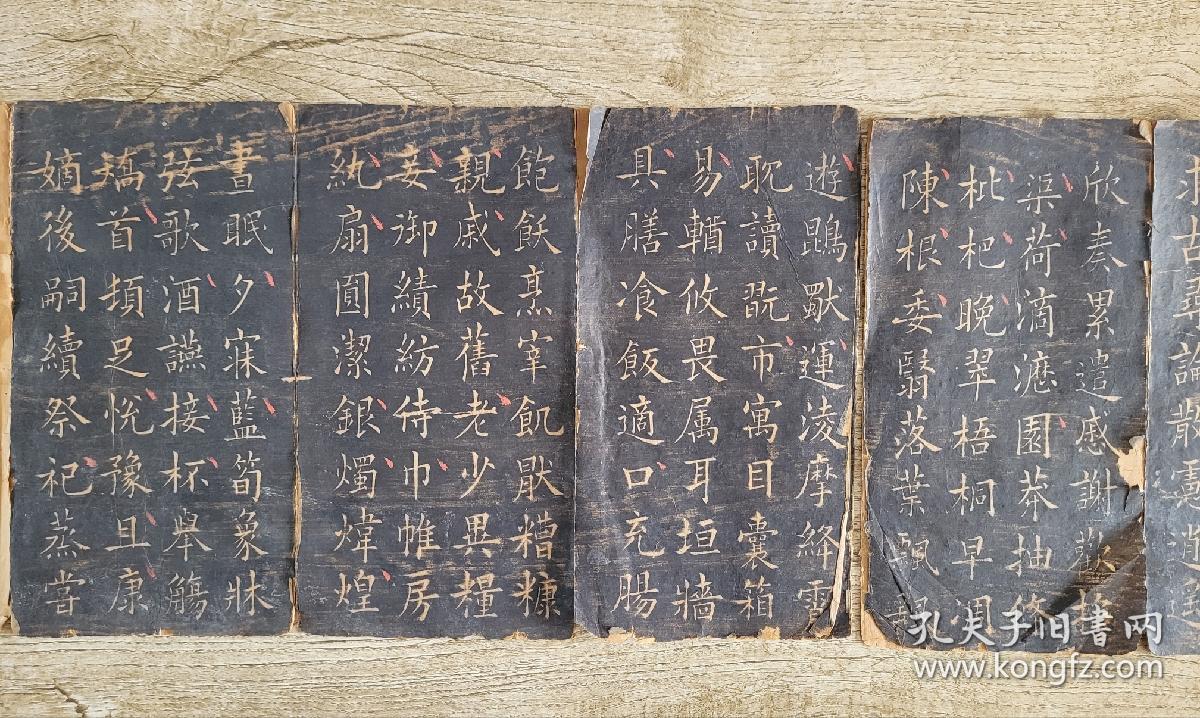 求古尋論散慮逍遙
欣奏累遣慼謝歡招
渠荷滴瀝園莽抽條
枇杷晚翠梧桐早凋
陳根委翳落葉飄颻
遊鵾獨運淩摩絳霄
耽讀翫市寓目囊箱
易輶攸畏属耳垣牆
具膳飡飯適口充腸
飽飫烹宰飢厭糟糠
親戚故舊老少異糧
妾御績紡侍巾帷房
紈扇圓潔銀燭煒煌
晝眠夕寐藍筍象牀
弦歌酒讌接杯舉觴
矯首頓足悅豫且康
嫡後嗣續祭祀蒸嘗
孔夫子旧书网
www.kongfz.com